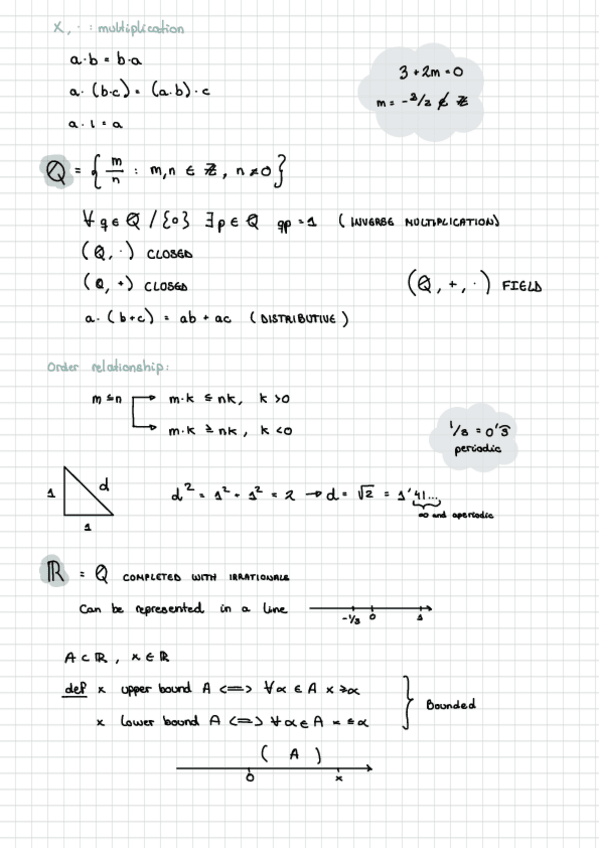 x, · : multiplication
a·b = b·a
a·(b·c) = (a·b)·c
a·1 = a
3 + 2m = 0
m = -3/2 ∉ ℤ
ℚ = { m/n : m,n ∈ ℤ, n ≠ 0 }
∀ q ∈ ℚ / {0} ∃ p ∈ ℚ qp = 1 (INVERSE MULTIPLICATION)
(ℚ, ·) CLOSED
(ℚ, +) CLOSED
(ℚ, +, ·) FIELD
a·(b+c) = ab + ac (DISTRIBUTIVE)
Order relationship:
m ≤ n
m·k ≤ nk, k > 0
m·k ≥ nk, k < 0
1/3 = 0'3̂
periodic
1 d
1
d² = 1² + 1² = 2 → d = √2 = 1'41...
∞ and aperiodic
ℝ = ℚ COMPLETED WITH IRRATIONALS
Can be represented in a line
-1/3 0 1
A ⊂ ℝ, x ∈ ℝ
def x upper bound A <=> ∀α ∈ A x ≥ α
x lower bound A <=> ∀α ∈ A x ≤ α
Bounded
( A )
0 x